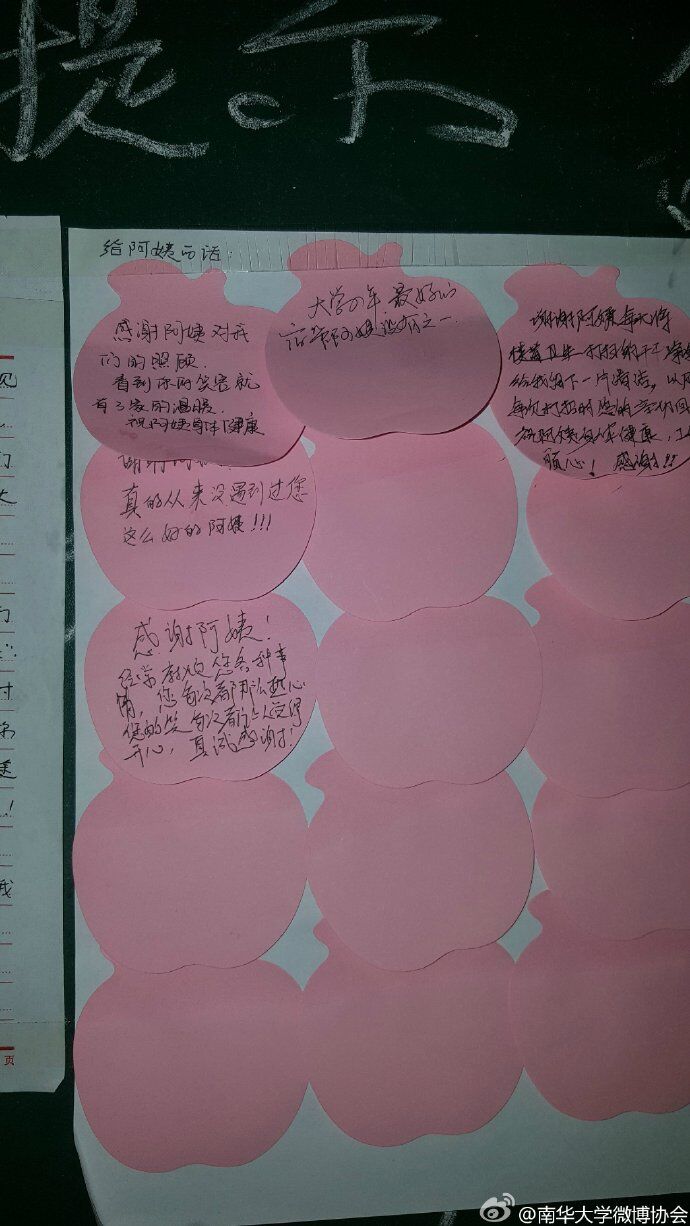 提示
给阿姨的话:
感谢阿姨对我
们的照顾.
看到你的笑容就
有了家的温暖.
祝阿姨身体健康
大学四年最好的
宿管阿姨没有之一.
谢谢阿姨每天将
楼道卫生打扫的干干净净
给我们留下一片清洁,以及
每次打招呼时您的亲切回
祝阿姨身体健康,工
顺心! 感谢!!
谢谢阿
真的从来没遇到过您
这么好的阿姨!!!
感谢阿姨!
经常麻烦您各种事
情,您每次都那么热心
您的笑每次都让人觉得
开心,真诚感谢!
见
们
大
对
条
逐
!
我
页
@南华大学微博协会